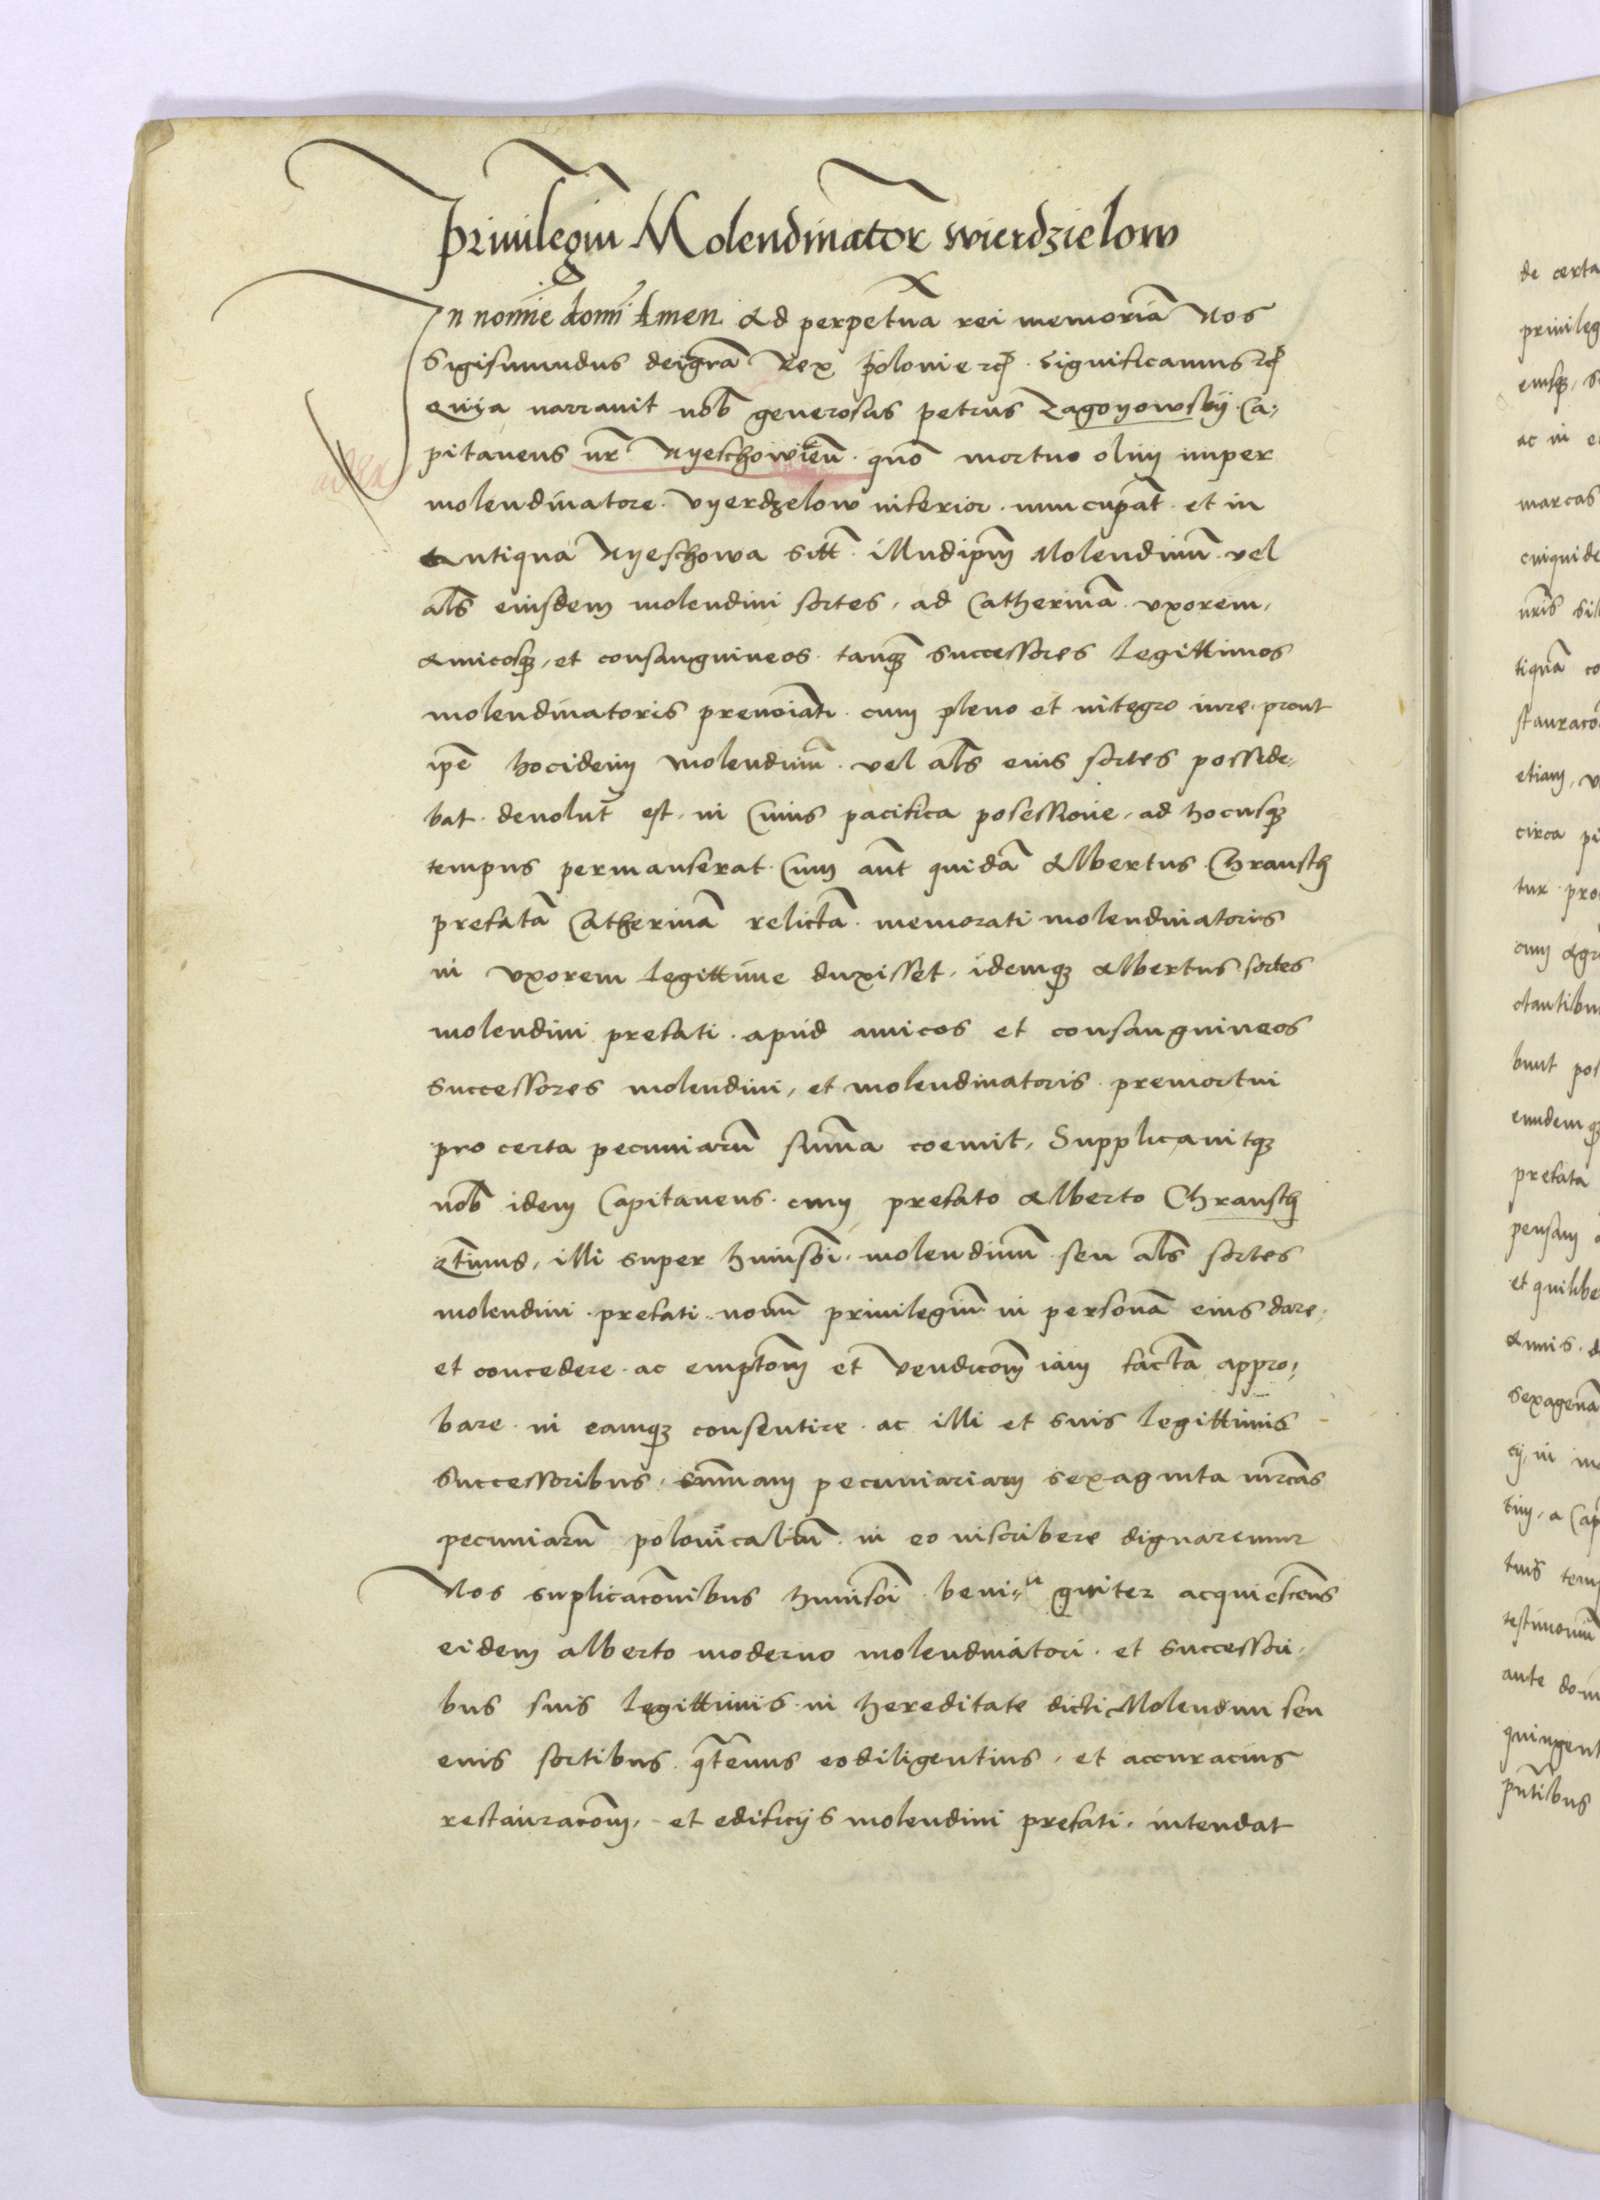 Priuilegiū Molendinator̄ wierdzielow
In nomīe domī Amen Ad perpetuā rei memoriā Nos
Sigismundus dei gr̄a Rex Polonie etc̄ . Significamus etc̄
Quia narrauit nob̄ generosus petrus Zagoyowskÿ Ca,
pitaneus nr̄ Nyeschowieñ . quō mortuo olim nuper
molendinatore . Vyerdzelow inferior . nuncupat̄ . et in
Antiqua Nyeschowa sitt̄ . illud ip̄m Molendinū . vel
al̄s eiusdem molendini sortes, ad Catherinā . vxorem,
Amicosq₃, et consanguineos . tanq₃ successores legittimos
molendinatoris prenoīati . cum pleno et integro iure . prout
ip̄e hoc idem molendinū . vel al̄s eius sortes posside,
bat . deuolut̄ est . in Cuius pacifica posessione, ad hocusq₃
tempus permanserat . Cum aūt quidā Albertus . Chransth
prefatā Catherinā relictā . memorati molendinatoris
in vxorem legittime duxisset, idemq₃ Albertus sortes
molendini prefati . apud amicos et consanguineos
successores molendini, et molendinatoris . premortui
pro certa pecuniarū sum̄a coemit, Supplicauitq₃
nob̄ idem Capitaneus . cum prefato Alberto Chransth
illi super huiusc̄i . molendinū seu al̄s sortes
molendini . prefati . nouū priuilegiū in personā eius dare,
et concedere . ac empt̄om̄ et vendicōm̄ iam factā appro,
bare . in eamq₃ consentire . ac illi et suis legittimis
successoribus, sum̄am pecuniariam sexaginta mrc̄as
pecuniarū polonicaliū . in eo inscribere dignaremur
Nos suplicacōnibus huiusc̄i . beni,, gniter acquiescen̄s
eidem alberto moderno molendinatori . et successori,
bus suis legittimis . in hereditate dicti Molendini seu
euis sortibus . q̄tenus eo diligentius, et accuracius
restauracōm̄, et edificijs molendini prefati . intendat
de certa
priuileg
eiusq₃, s
ac in e
marcas
cuiquide
nr̄is
tiquā co
stauracō
etiam, v
circa pi
tur . pro
cum Agr
ctantibu
bunt pos
eiudemq₃
prefata
pensam
et quilibe
Annis . d
sexagenā
in
a Cap
tuis temp
testimoniū
ante dom
quingent
pn̄tibus